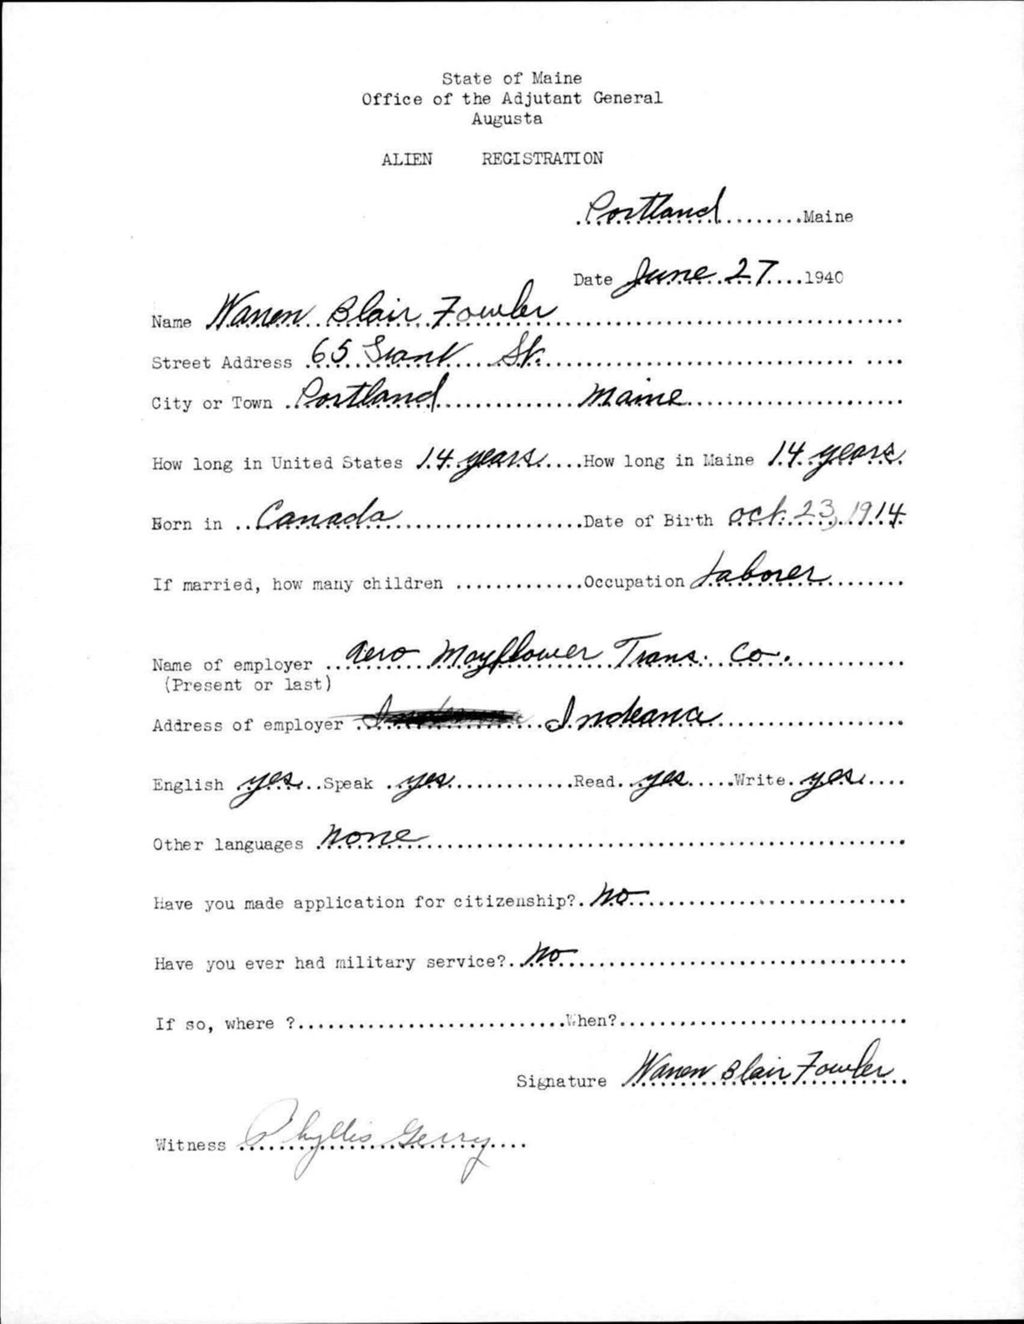 State of Maine
Office of the Adjutant General
Augusta
ALIEN REGISTRATION
Portland Maine
Date June 27 1940
Name Warren Blair Fowler
Street Address 65 Grant St.
City or Town Portland Maine
How long in United States 14 years How long in Maine 14 years
Born in Canada Date of Birth Oct. 23, 1914
If married, how many children Occupation Laborer
Name of employer Aero Mayflower Trans. Co.
(Present or last)
Address of employer Indeana
English yes Speak yes Read yes Write yes
Other languages None
Have you made application for citizenship? No
Have you ever had military service? No
If so, where ? When?
Signature Warren Blair Fowler
Witness Phyllis Gerry